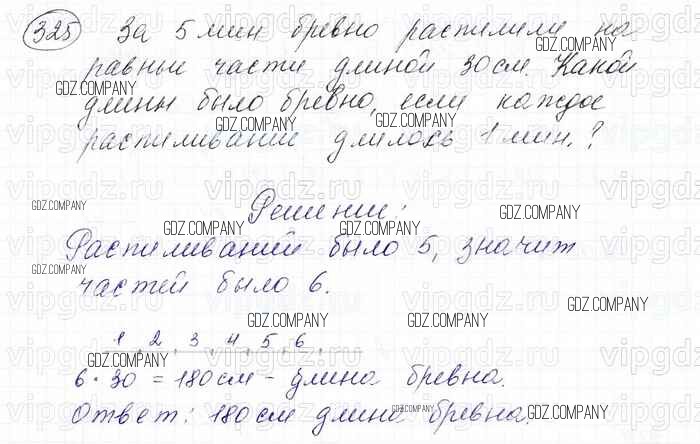 325 За 5 мин бревно распилили на
равные части длиной 30 см. Какой
длины было бревно, если каждое
распиливание длилось 1 мин.?
Решение:
Распиливаний было 5, значит
частей было 6.
1 2 3 4 5 6
6 · 30 = 180 см - длина бревна.
Ответ: 180 см длина бревна.
GDZ.COMPANY
vipgdz.ru